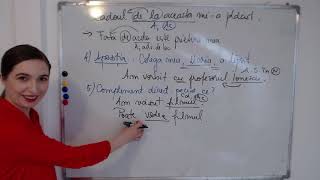 Cadoul de la aceasta mi-a plăcut.
→ Fata de acolo este prietena mea.
4) Apoziția: Colega mea, Maria, a lipsit.
Am vorbit cu profesorul Ionescu.
5) Complement direct: pe cine? ce?
Am văzut filmul.
Poate vedea filmul